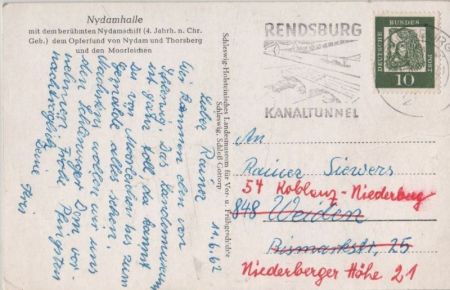 Nydamhalle
mit dem berühmten Nydamschiff (4. Jahrh. n. Chr.
Geb.) dem Opferfund von Nydam und Thorsberg
und den Moorleichen
11.6.62
Lieber Rainer
wir kommen von
Schleswig. Das Landesmuseum
ist ganz toll. Da kannst
Du von Moorleichen bis zum
Gemälde alles sehen.
Nachher wollen wir uns
den Schleswiger Dom vor-
nehmen. Frohe Pfingsten
nachträglich
Deine
Schleswig-Holsteinisches Landesmuseum für Vor- u. Frühgeschichte
Schleswig, Schloß Gottorp
RENDSBURG
KANALTUNNEL
DEUTSCHE BUNDESPOST
10
An
Rainer Siewers
54 Koblenz-Niederberg
848 Weiden
Bismarckstr. 25
Niederberger Höhe 21